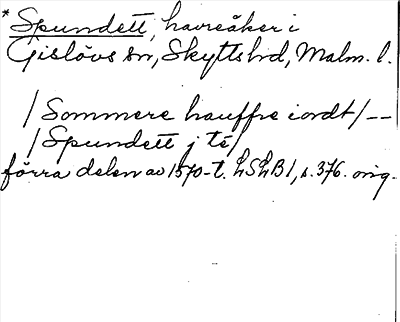 * Spundett, havreåker i
Gislövs sn, Skytts hd, Malm. l.
/Sommere hauffre iordt/--
/Spundett j té/
förra delen av 1570-t. LSLB1, s. 376. orig.